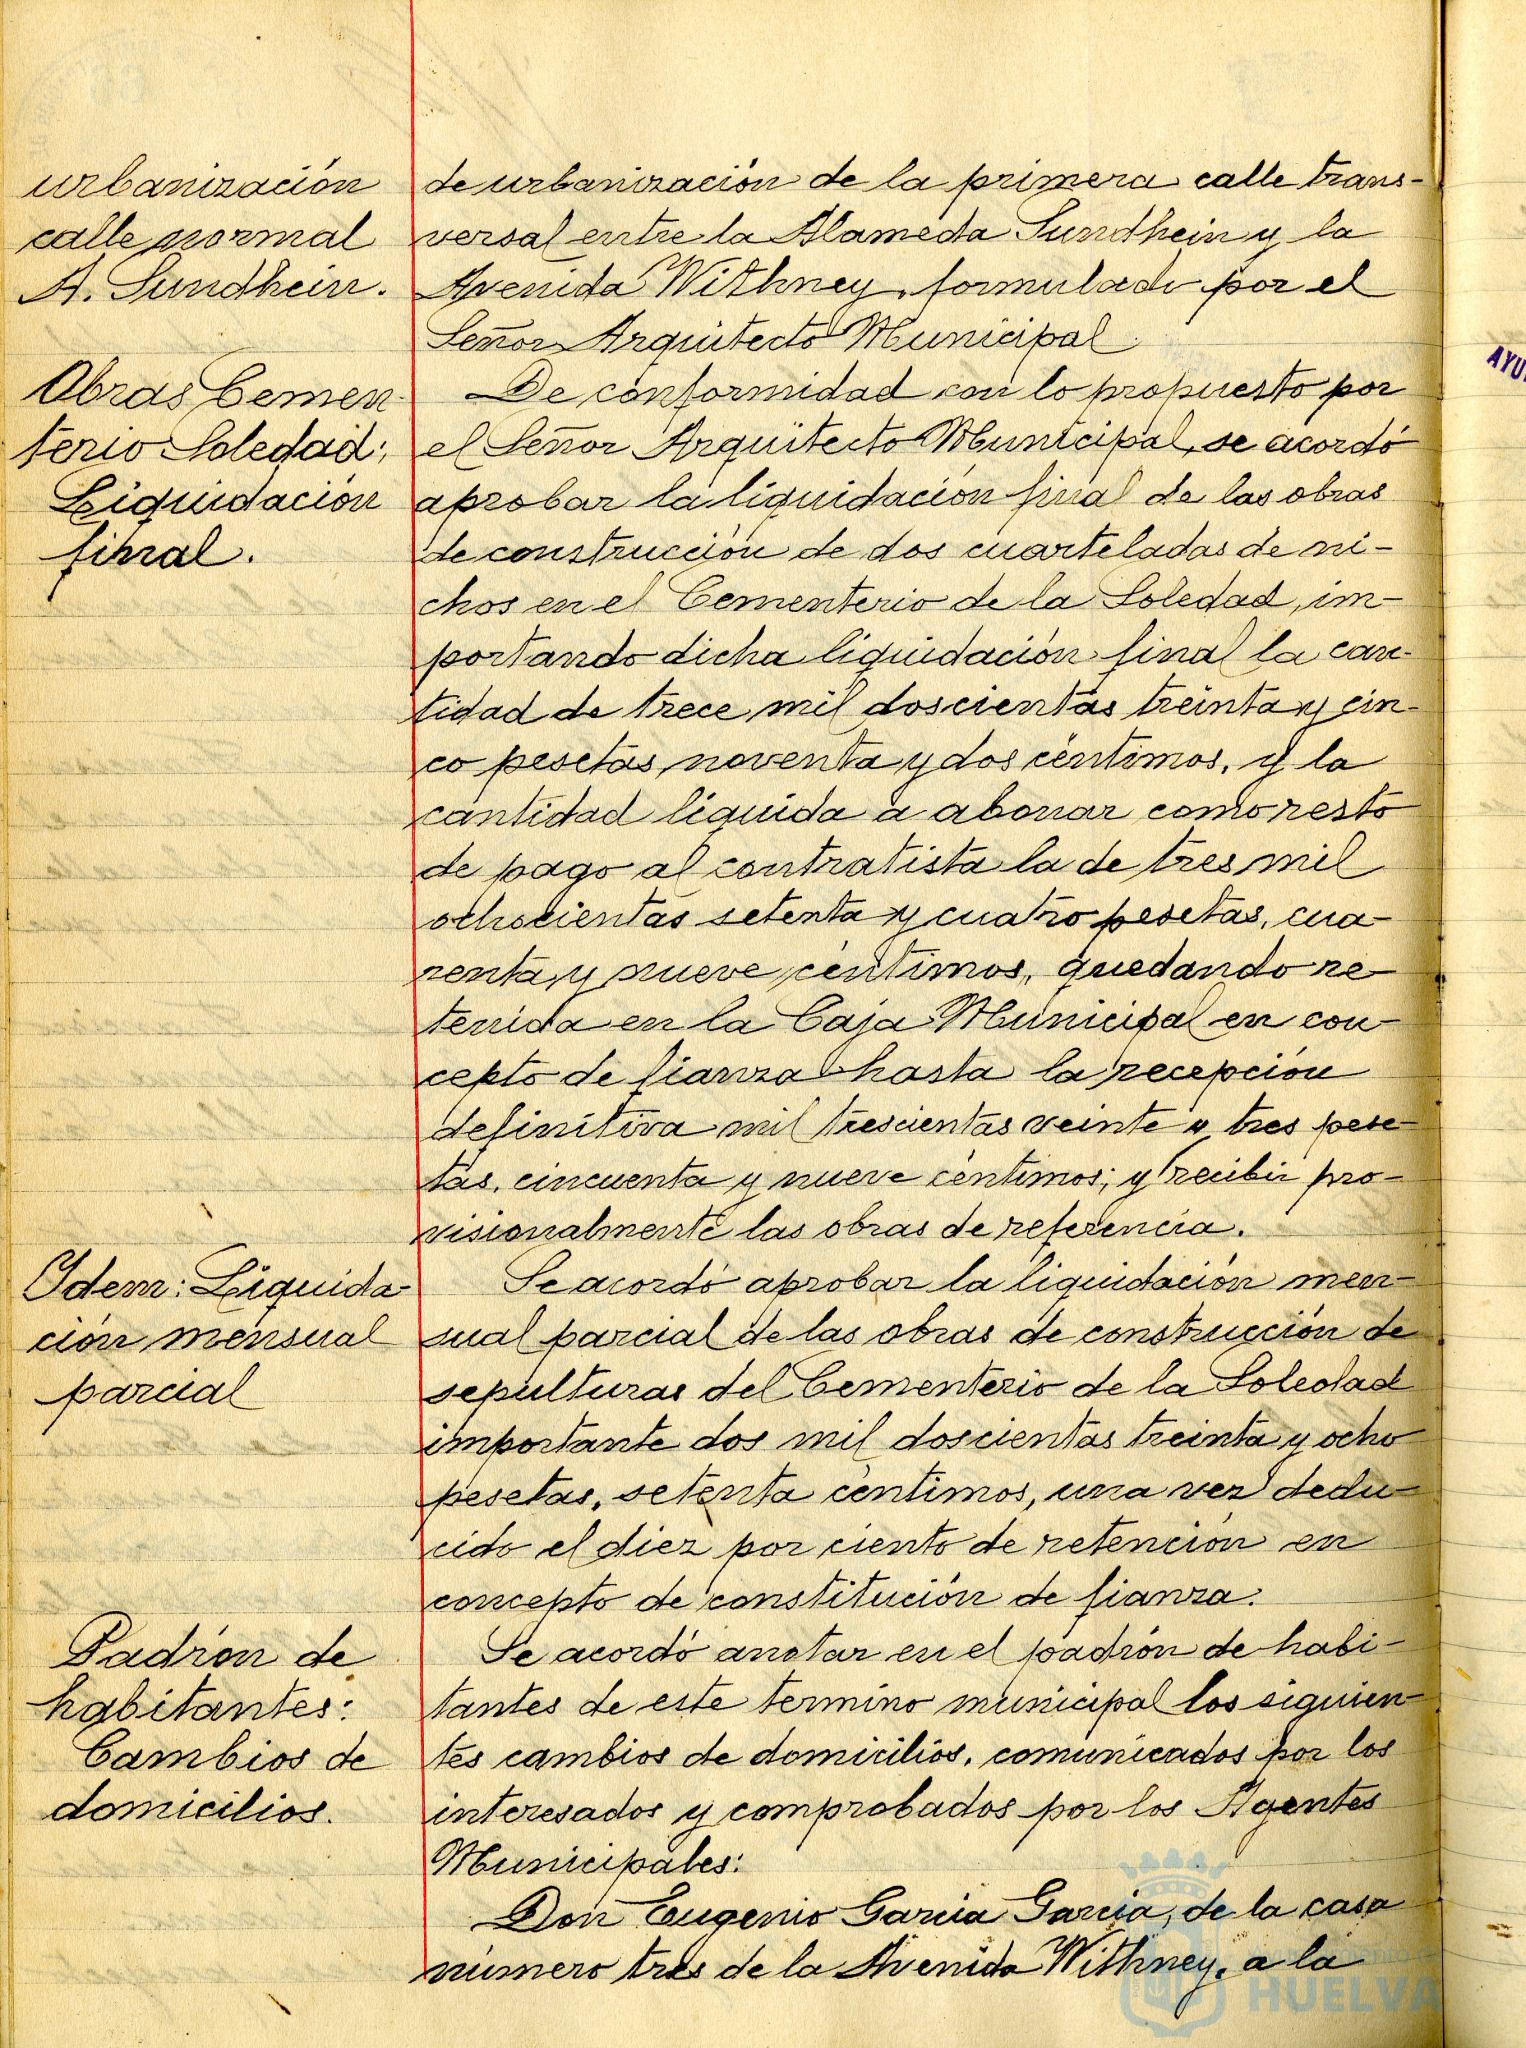 urbanización
calle normal
A. Sundhein.
de urbanización de la primera calle trans-
versal entre la Alameda Sundhein y la
Avenida Withney, formulado por el
Señor Arquitecto Municipal.
Obras Cemen-
terio Soledad;
Liquidación
final.
De conformidad con lo propuesto por
el Señor Arquitecto Municipal, se acordó
aprobar la liquidación final de las obras
de construcción de dos cuarteladas de ni-
chos en el Cementerio de la Soledad, im-
portando dicha liquidación final la can-
tidad de trece mil doscientas treinta y cin-
co pesetas, noventa y dos céntimos, y la
cantidad líquida a abonar como resto
de pago al contratista la de tres mil
ochocientas setenta y cuatro pesetas, cua-
renta y nueve céntimos, quedando re-
tenida en la Caja Municipal en con-
cepto de fianza hasta la recepción
definitiva mil trescientas veinte y tres pese-
tas, cincuenta y nueve céntimos; y recibir pro-
visionalmente las obras de referencia.
Idem: Liquida-
ción mensual
parcial
Se acordó aprobar la liquidación men-
sual parcial de las obras de construcción de
sepulturas del Cementerio de la Soledad
importante dos mil doscientas treinta y ocho
pesetas, setenta céntimos, una vez dedu-
cido el diez por ciento de retención en
concepto de constitución de fianza.
Padrón de
habitantes:
Cambios de
domicilios.
Se acordó anotar en el padrón de habi-
tantes de este termino municipal los siguien-
tes cambios de domicilios, comunicados por los
interesados y comprobados por los Agentes
Municipales:
Don Eugenio Garcia Garcia, de la casa
número tres de la Avenida Withney, a la
HUELVA